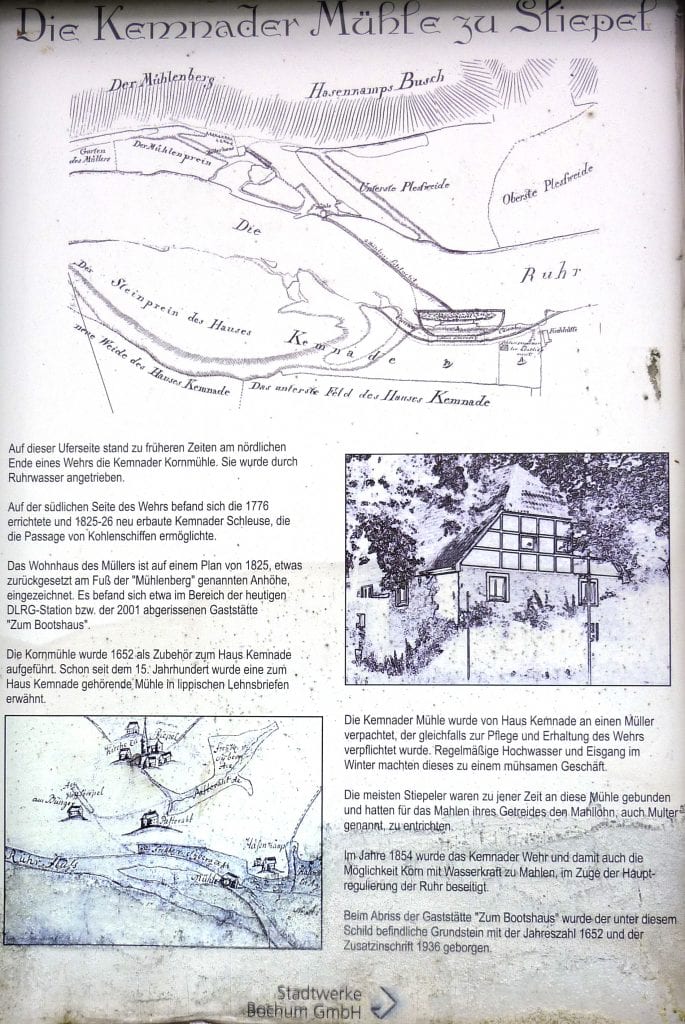 Die Kemnader Mühle zu Stiepel
Der Mühlenberg
Hasenkamps Busch
Garten
des Müllers
Der Mühlenprein
Unterste Plesweide
Oberste Plesweide
Die
Ruhr
Der
Steinprein des Hauses
Kemnade
neue Weide des Hauses Kemnade
Das unterste Feld des Hauses Kemnade
Auf dieser Uferseite stand zu früheren Zeiten am nördlichen
Ende eines Wehrs die Kemnader Kornmühle. Sie wurde durch
Ruhrwasser angetrieben.
Auf der südlichen Seite des Wehrs befand sich die 1776
errichtete und 1825-26 neu erbaute Kemnader Schleuse, die
die Passage von Kohlenschiffen ermöglichte.
Das Wohnhaus des Müllers ist auf einem Plan von 1825, etwas
zurückgesetzt am Fuß der "Mühlenberg" genannten Anhöhe,
eingezeichnet. Es befand sich etwa im Bereich der heutigen
DLRG-Station bzw. der 2001 abgerissenen Gaststätte
"Zum Bootshaus".
Die Kornmühle wurde 1652 als Zubehör zum Haus Kemnade
aufgeführt. Schon seit dem 15. Jahrhundert wurde eine zum
Haus Kemnade gehörende Mühle in lippischen Lehnsbriefen
erwähnt.
Kirche zu Stiepel
Ruhr fluß
Mühle
Die Kemnader Mühle wurde von Haus Kemnade an einen Müller
verpachtet, der gleichfalls zur Pflege und Erhaltung des Wehrs
verpflichtet wurde. Regelmäßige Hochwasser und Eisgang im
Winter machten dieses zu einem mühsamen Geschäft.
Die meisten Stiepeler waren zu jener Zeit an diese Mühle gebunden
und hatten für das Mahlen ihres Getreides den Mahllohn, auch Multer
genannt, zu entrichten.
Im Jahre 1854 wurde das Kemnader Wehr und damit auch die
Möglichkeit Korn mit Wasserkraft zu Mahlen, im Zuge der Haupt-
regulierung der Ruhr beseitigt.
Beim Abriss der Gaststätte "Zum Bootshaus" wurde der unter diesem
Schild befindliche Grundstein mit der Jahreszahl 1652 und der
Zusatzinschrift 1936 geborgen.
Stadtwerke
Bochum GmbH